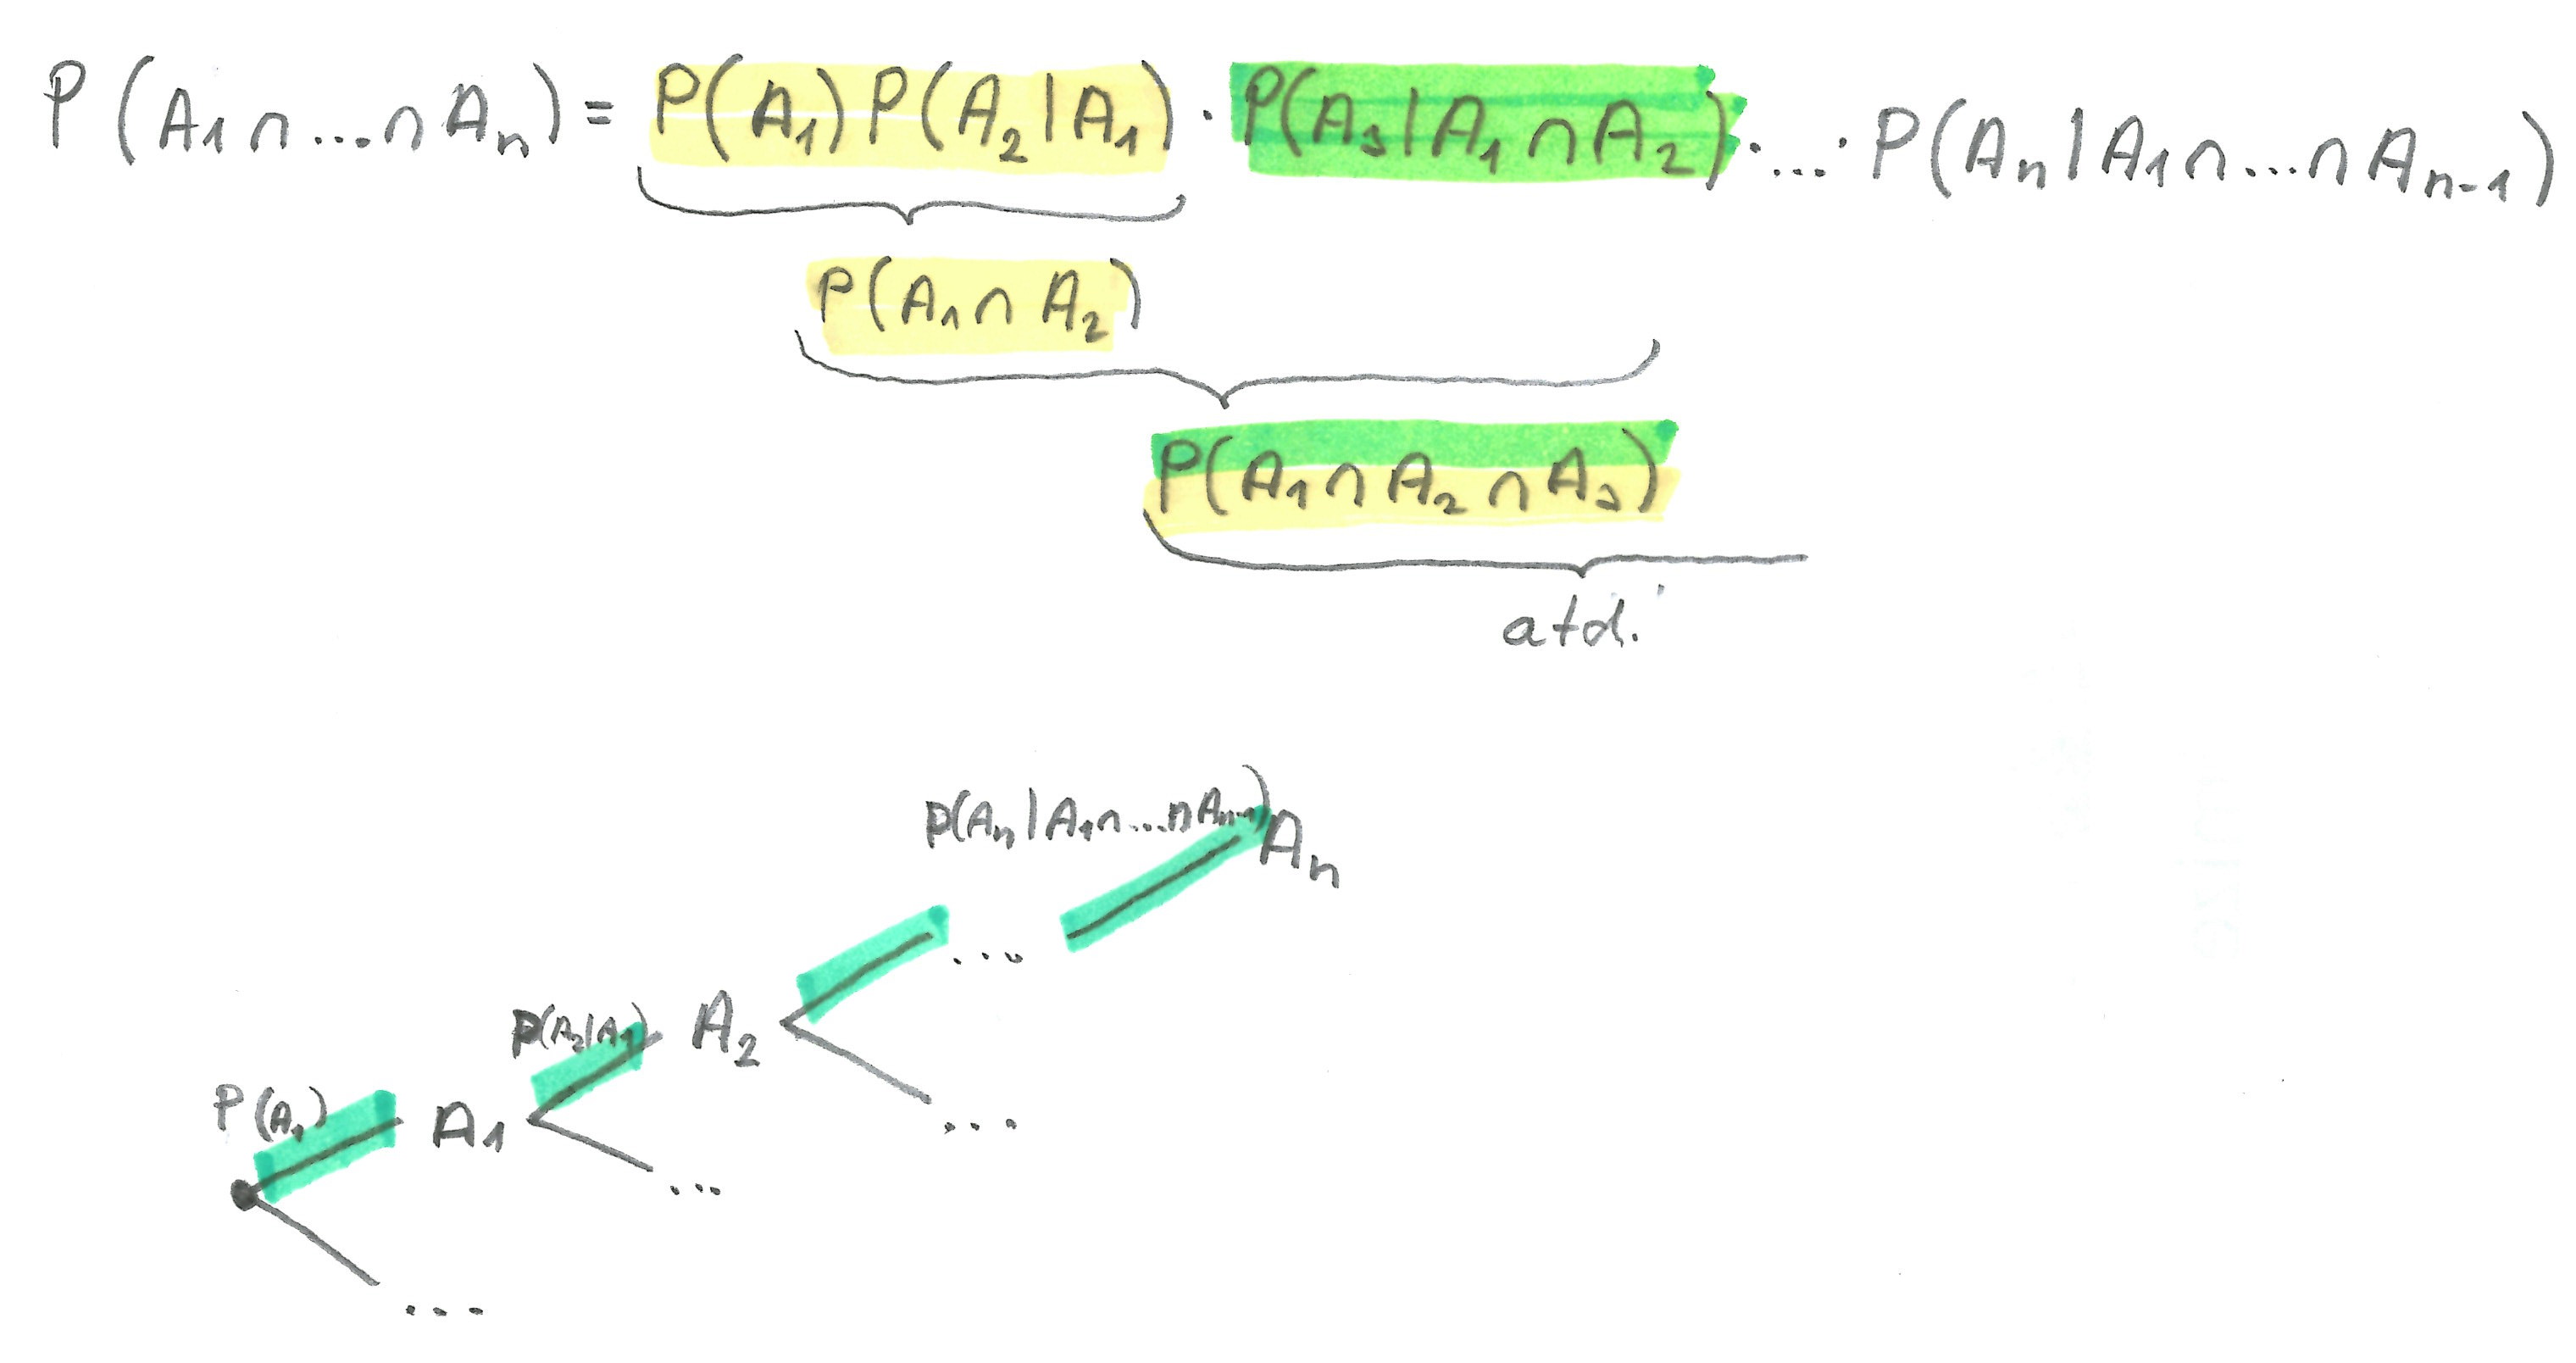 P(A₁∩...∩Aₙ) = P(A₁)P(A₂|A₁)·P(A₃|A₁∩A₂)·...·P(Aₙ|A₁∩...∩Aₙ₋₁)
P(A₁∩A₂)
P(A₁∩A₂∩A₃)
atd.
P(Aₙ|A₁∩...∩Aₙ₋₁) Aₙ
...
P(A₂|A₁) A₂
P(A₁) A₁ ...
...
...